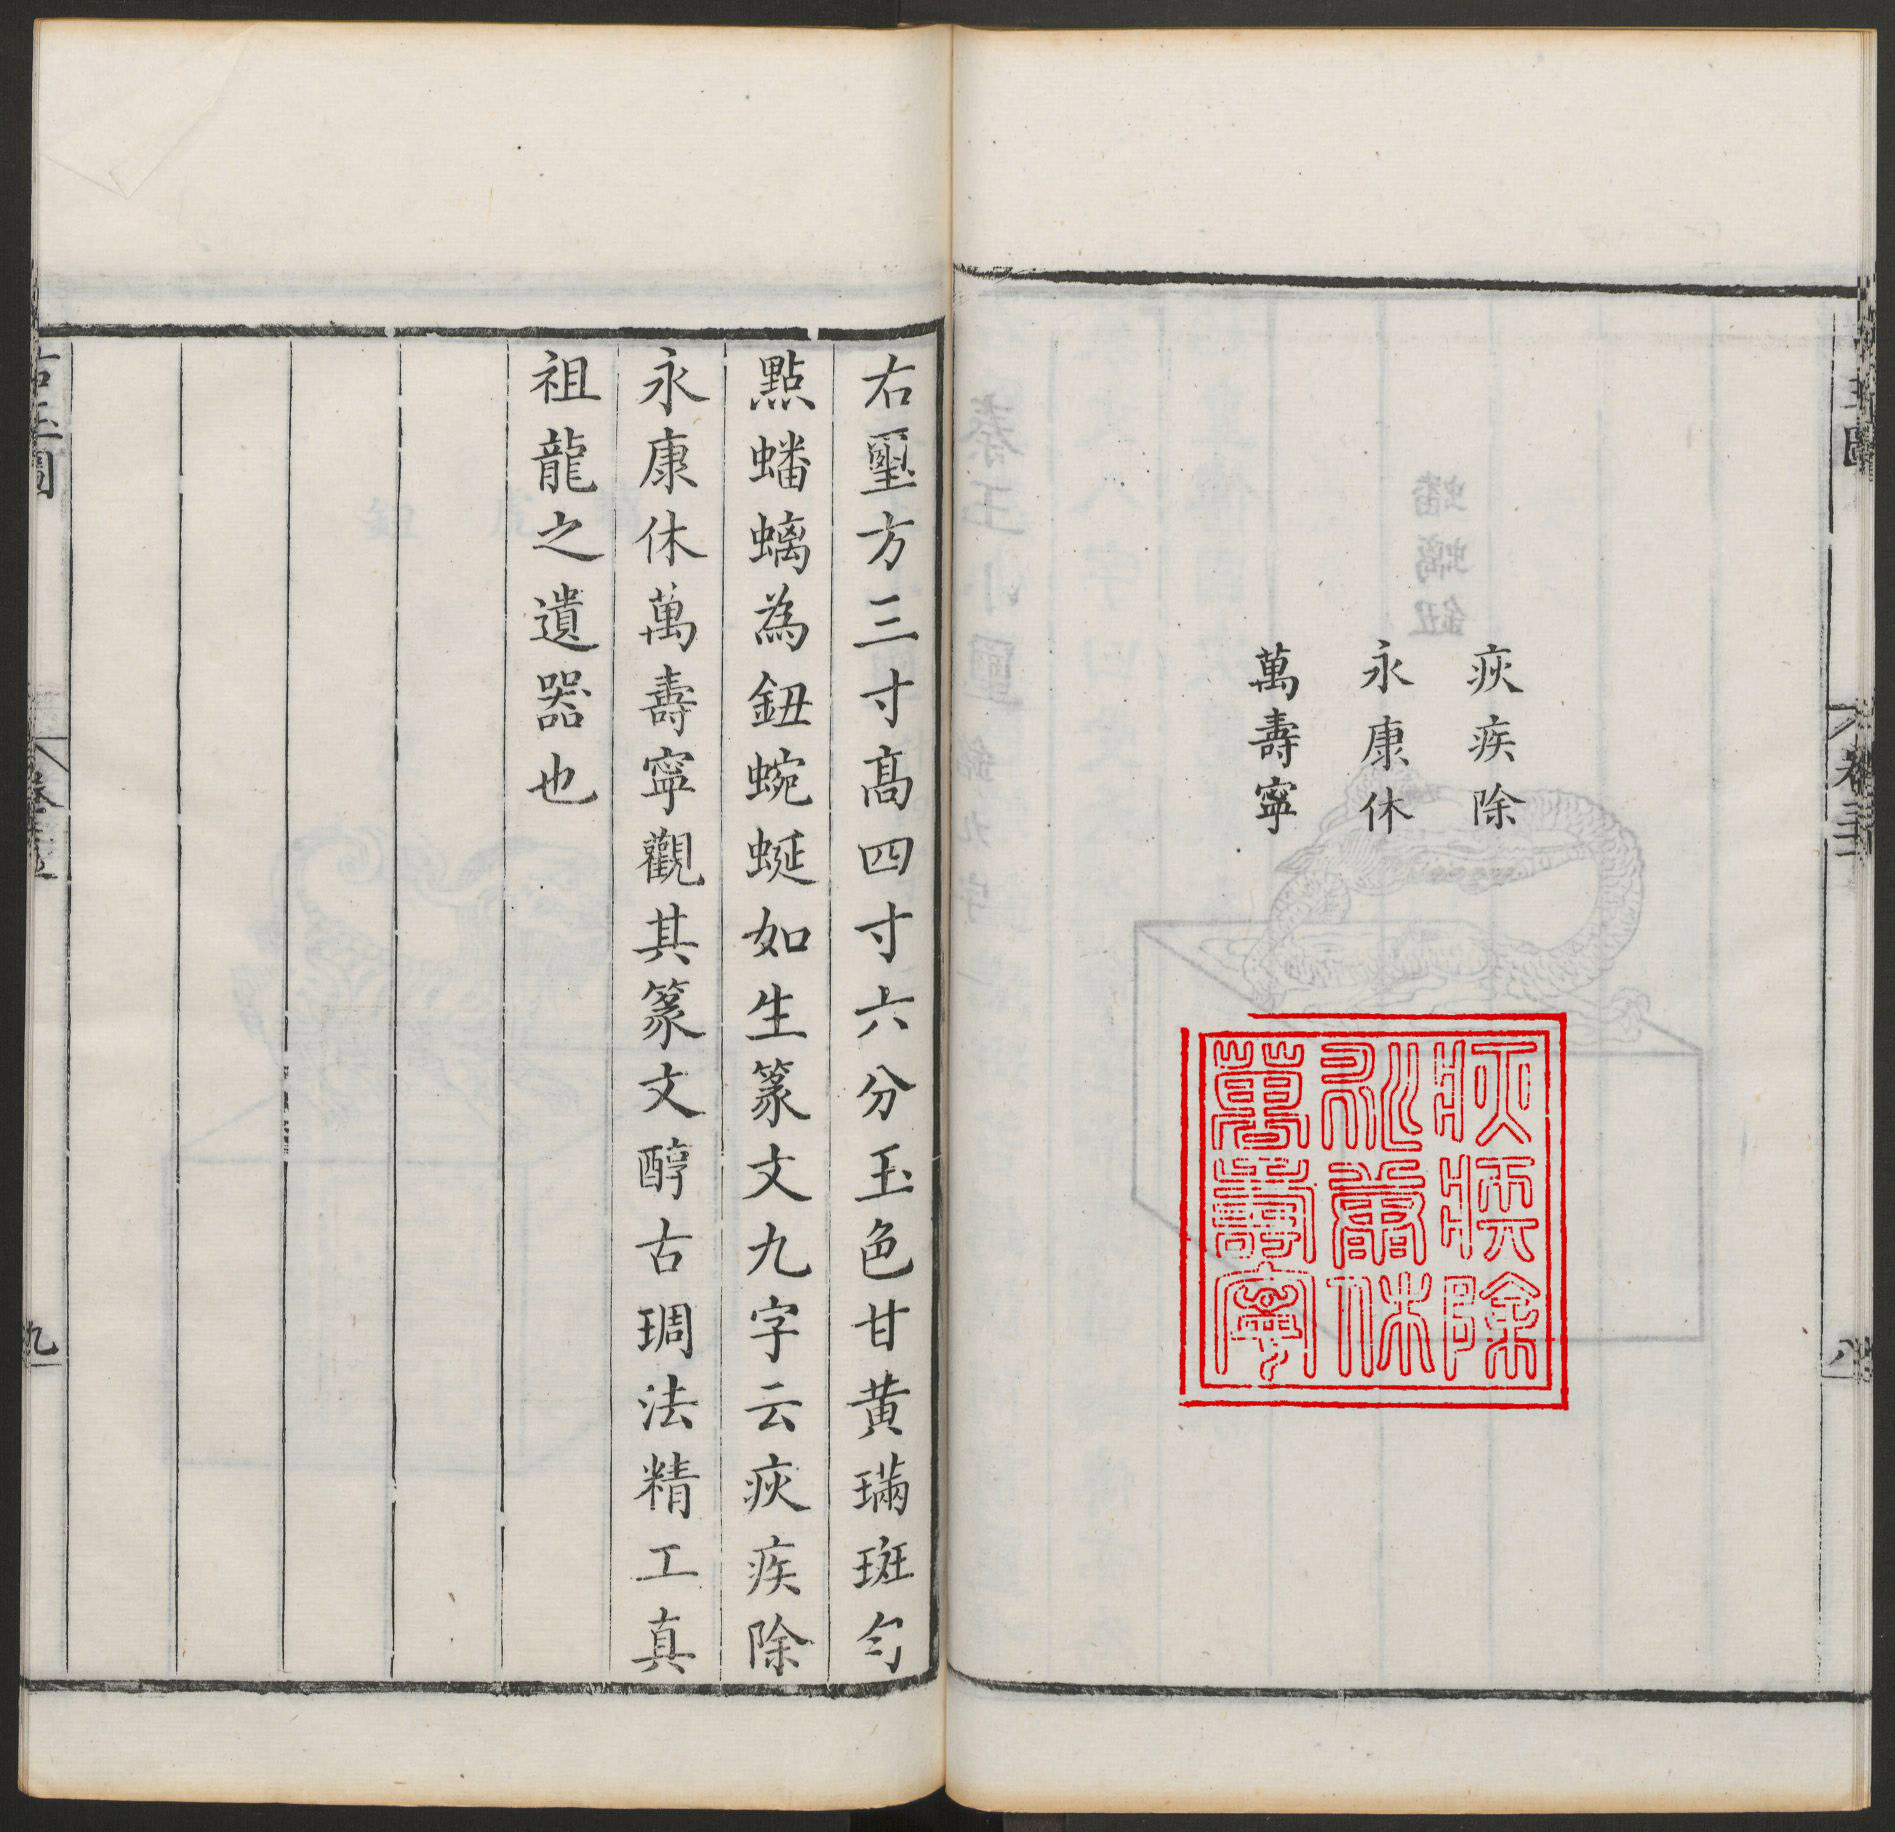 疢疾除
永康休
萬壽寧
疢疾除
永康休
萬壽寧
卷三
八
右璽方三寸高四寸六分玉色甘黄璊斑勻
點蟠螭為鈕蜿蜒如生篆文九字云疢疾除
永康休萬壽寧觀其篆文醇古琱法精工真
祖龍之遺器也
古玉圖
九